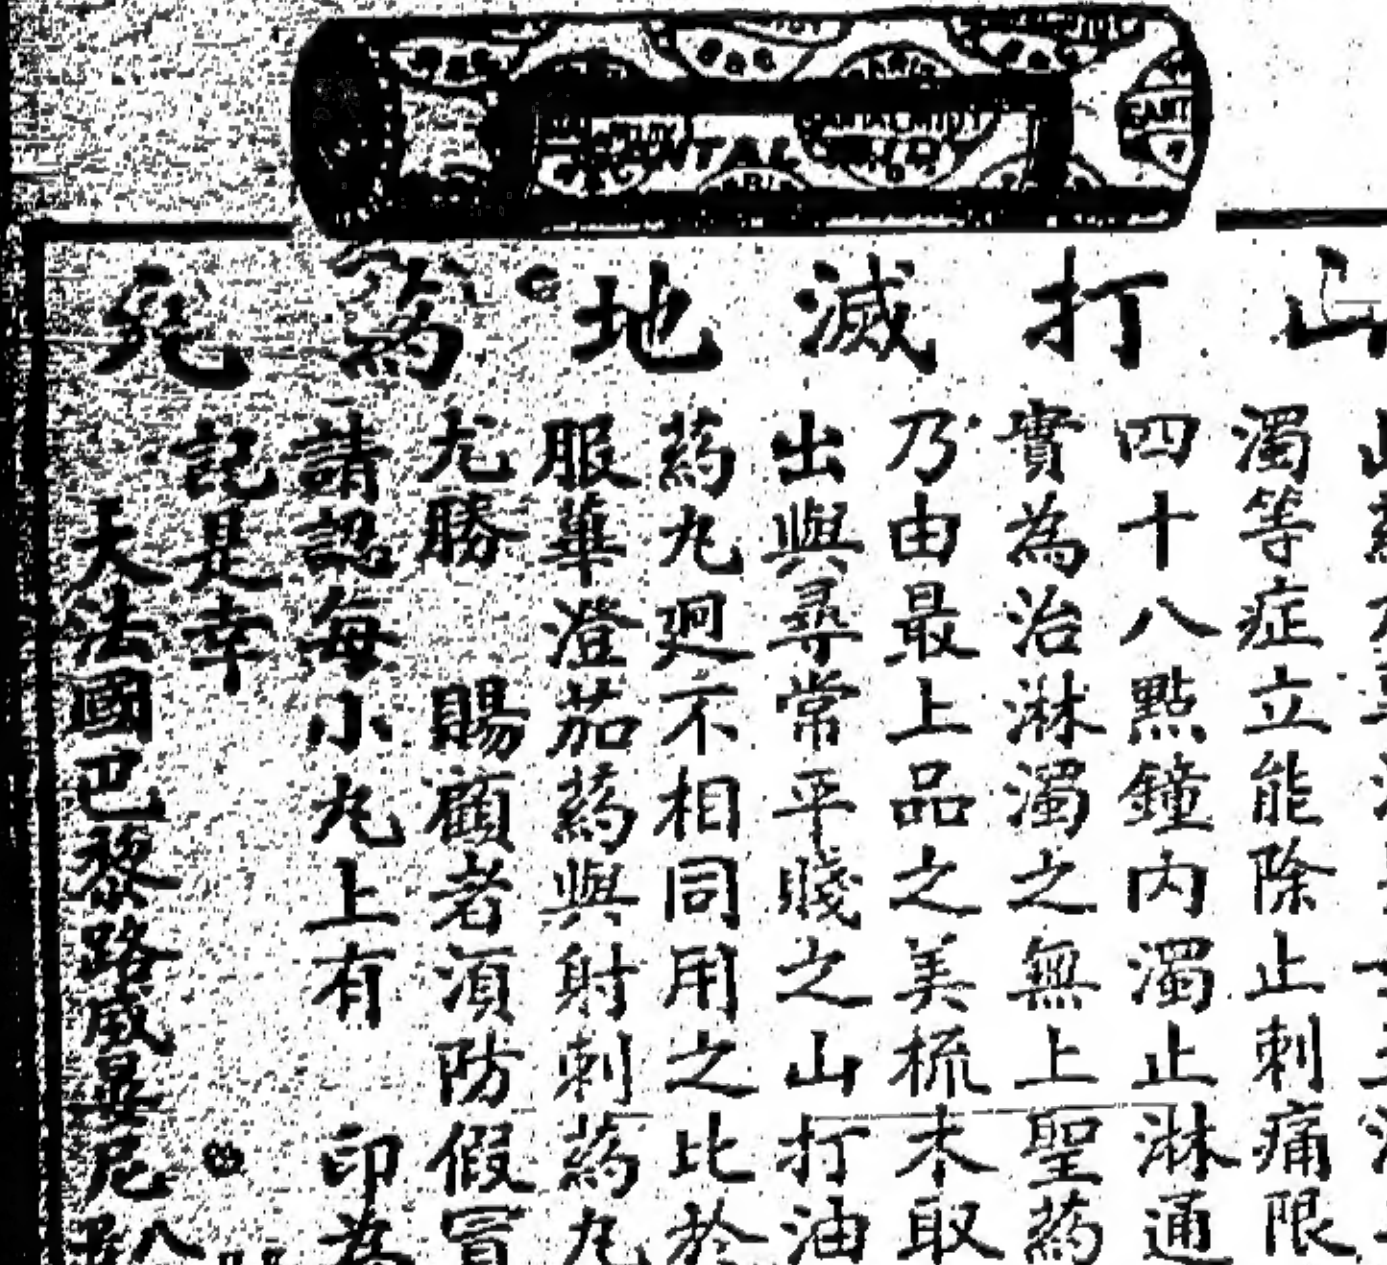 SANTAL MIDY
山打滅地葯丸
濁等症立能除止刺痛限
四十八點鐘內濁止淋通
實為治淋濁之無上聖葯
乃由最上品之美梳木取
出與尋常平賤之山打油
葯丸迥不相同用之比於
服華澄茄葯與射刺葯丸
尤勝 賜顧者須防假冒
請認每小丸上有 印為
記是幸
大法國巴黎路威晏尼